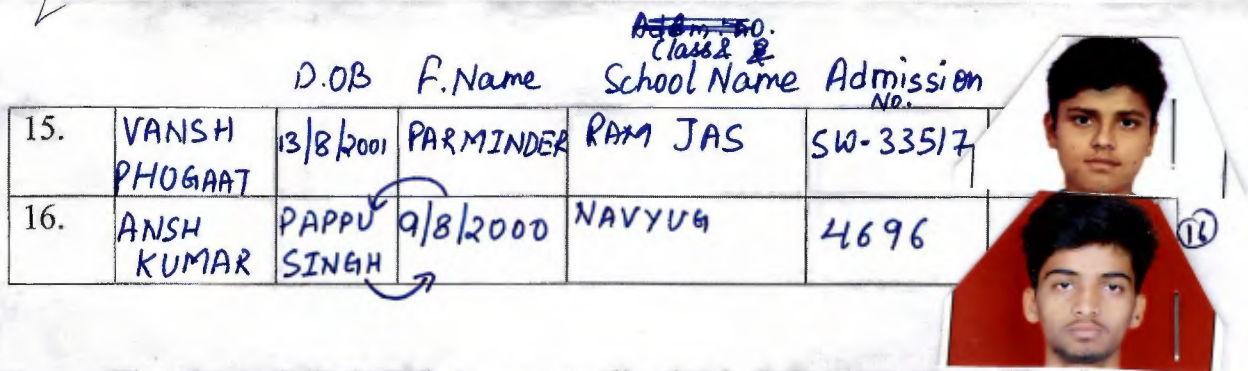 Class &
D.OB F.Name School Name Admission No.
15. VANSH PHOGAAT 13/8/2001 PARMINDER RAM JAS SW-33517
16. ANSH KUMAR PAPPU SINGH 9/8/2000 NAVYUG 4696 16